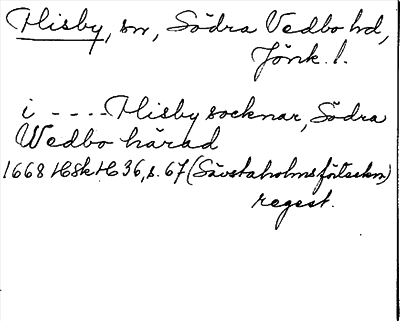 Hisby, sn, Södra Vedbo hd,
Jönk. l.
i ---- Hisby socknar, Södra
Wedbo härad
1668 HSkH 36, s. 67 (Sävstaholmsförteckn)
regest.